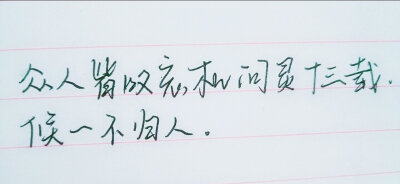 众人皆叹忘机问灵十三载.
候一不归人.